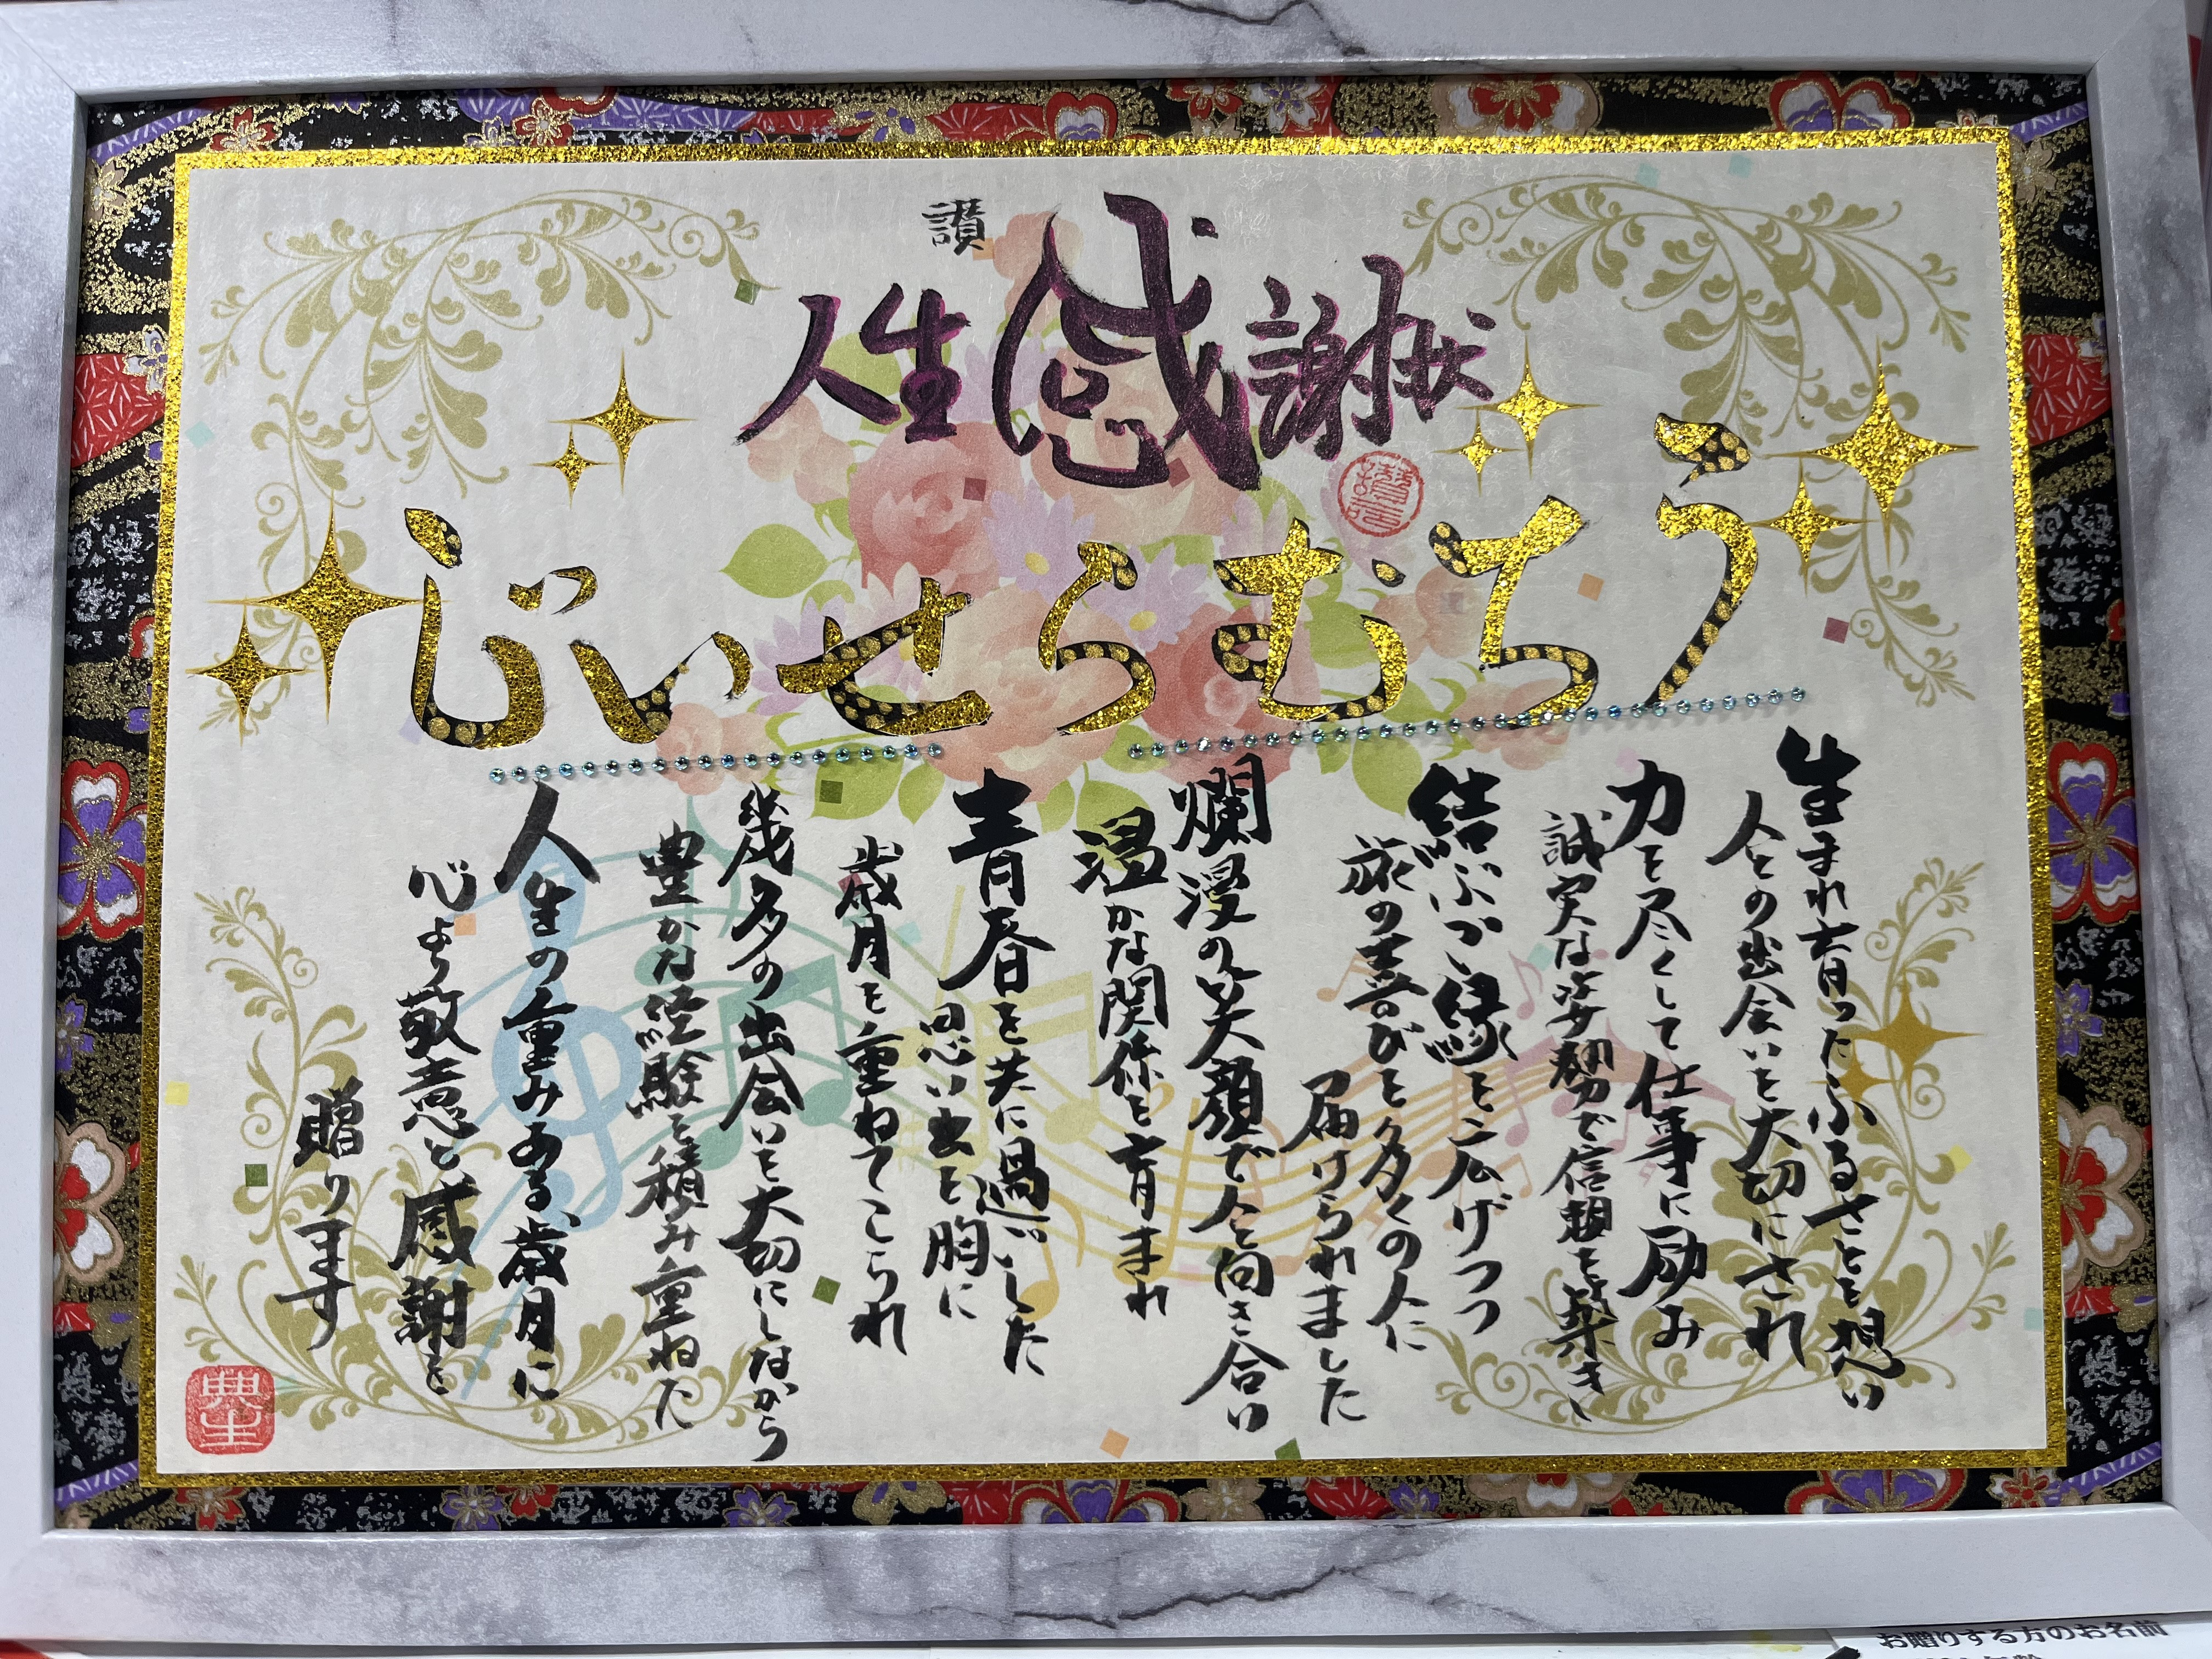 讃
人生感謝状
うちむらせいじ
生まれ育ったふるさとを想い
人との出会いを大切にされ
力を尽くして仕事に励み
誠実な姿勢で信頼を築き、
結ぶご縁を広げつつ
旅の喜びを多くの人に
届けられました
爛漫の笑顔で人と向き合い
温かな関係を育まれ
青春を共に過ごした
思い出を胸に
歳月を重ねてこられ
幾多の出会いを大切にしながら
豊かな経験を積み重ねた
人生の重みある歳月に
心より敬意と感謝を
贈ります
お贈りする方のお名前